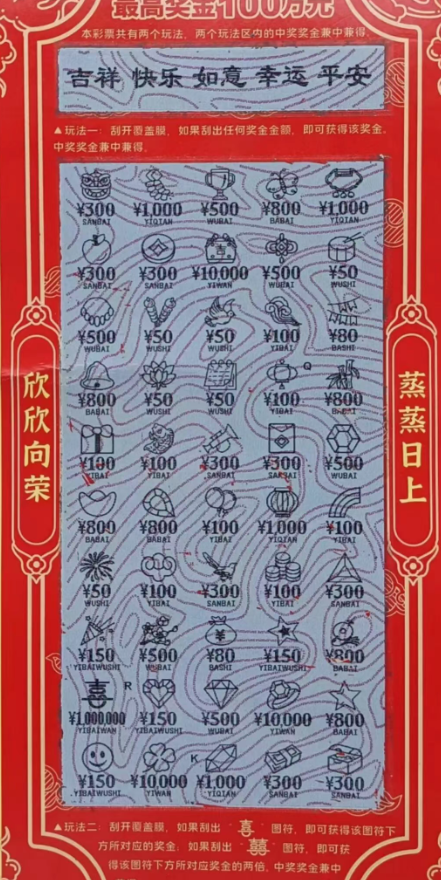 最高奖金100万元
本彩票共有两个玩法，两个玩法区内的中奖奖金兼中兼得。
吉祥 快乐 如意 幸运 平安
▲玩法一：刮开覆盖膜，如果刮出任何奖金金额，即可获得该奖金。
中奖奖金兼中兼得。
¥300 ¥1,000 ¥500 ¥800 ¥1,000
SANBAI YIQIAN WUBAI BABAI YIQIAN
¥300 ¥300 ¥10,000 ¥500 ¥50
SANBAI SANBAI YIWAN WUBAI WUSHI
¥500 ¥50 ¥50 ¥100 ¥80
WUBAI WUSHI WUSHI YIBAI BASHI
Q
¥800 ¥50 ¥50 ¥100 ¥800
BABAI WUSHI WUSHI YIBAI BABAI
¥100 ¥100 ¥300 ¥300 ¥500
YIBAI YIBAI SANBAI SANBAI WUBAI
¥800 ¥800 ¥100 ¥1,000 ¥100
BABAI BABAI YIBAI YIQIAN YIBAI
¥50 ¥100 ¥300 ¥100 ¥300
WUSHI YIBAI SANBAI YIBAI SANBAI
¥150 ¥500 ¥80 ¥150 ¥800
YIBAIWUSHI WUBAI BASHI YIBAIWUSHI BABAI
喜 R
¥1,000,000 ¥150 ¥500 ¥10,000 ¥800
YIBAIWAN YIBAIWUSHI WUBAI YIWAN BABAI
K
¥150 ¥10,000 ¥1,000 ¥300 ¥300
YIBAIWUSHI YIWAN YIQIAN SANBAI SANBAI
欣欣向荣
蒸蒸日上
▲玩法二：刮开覆盖膜，如果刮出 喜 图符，即可获得该图符下
方所对应的奖金；如果刮出 囍 图符，即可获
得该图符下方所对应奖金的两倍。中奖奖金兼中